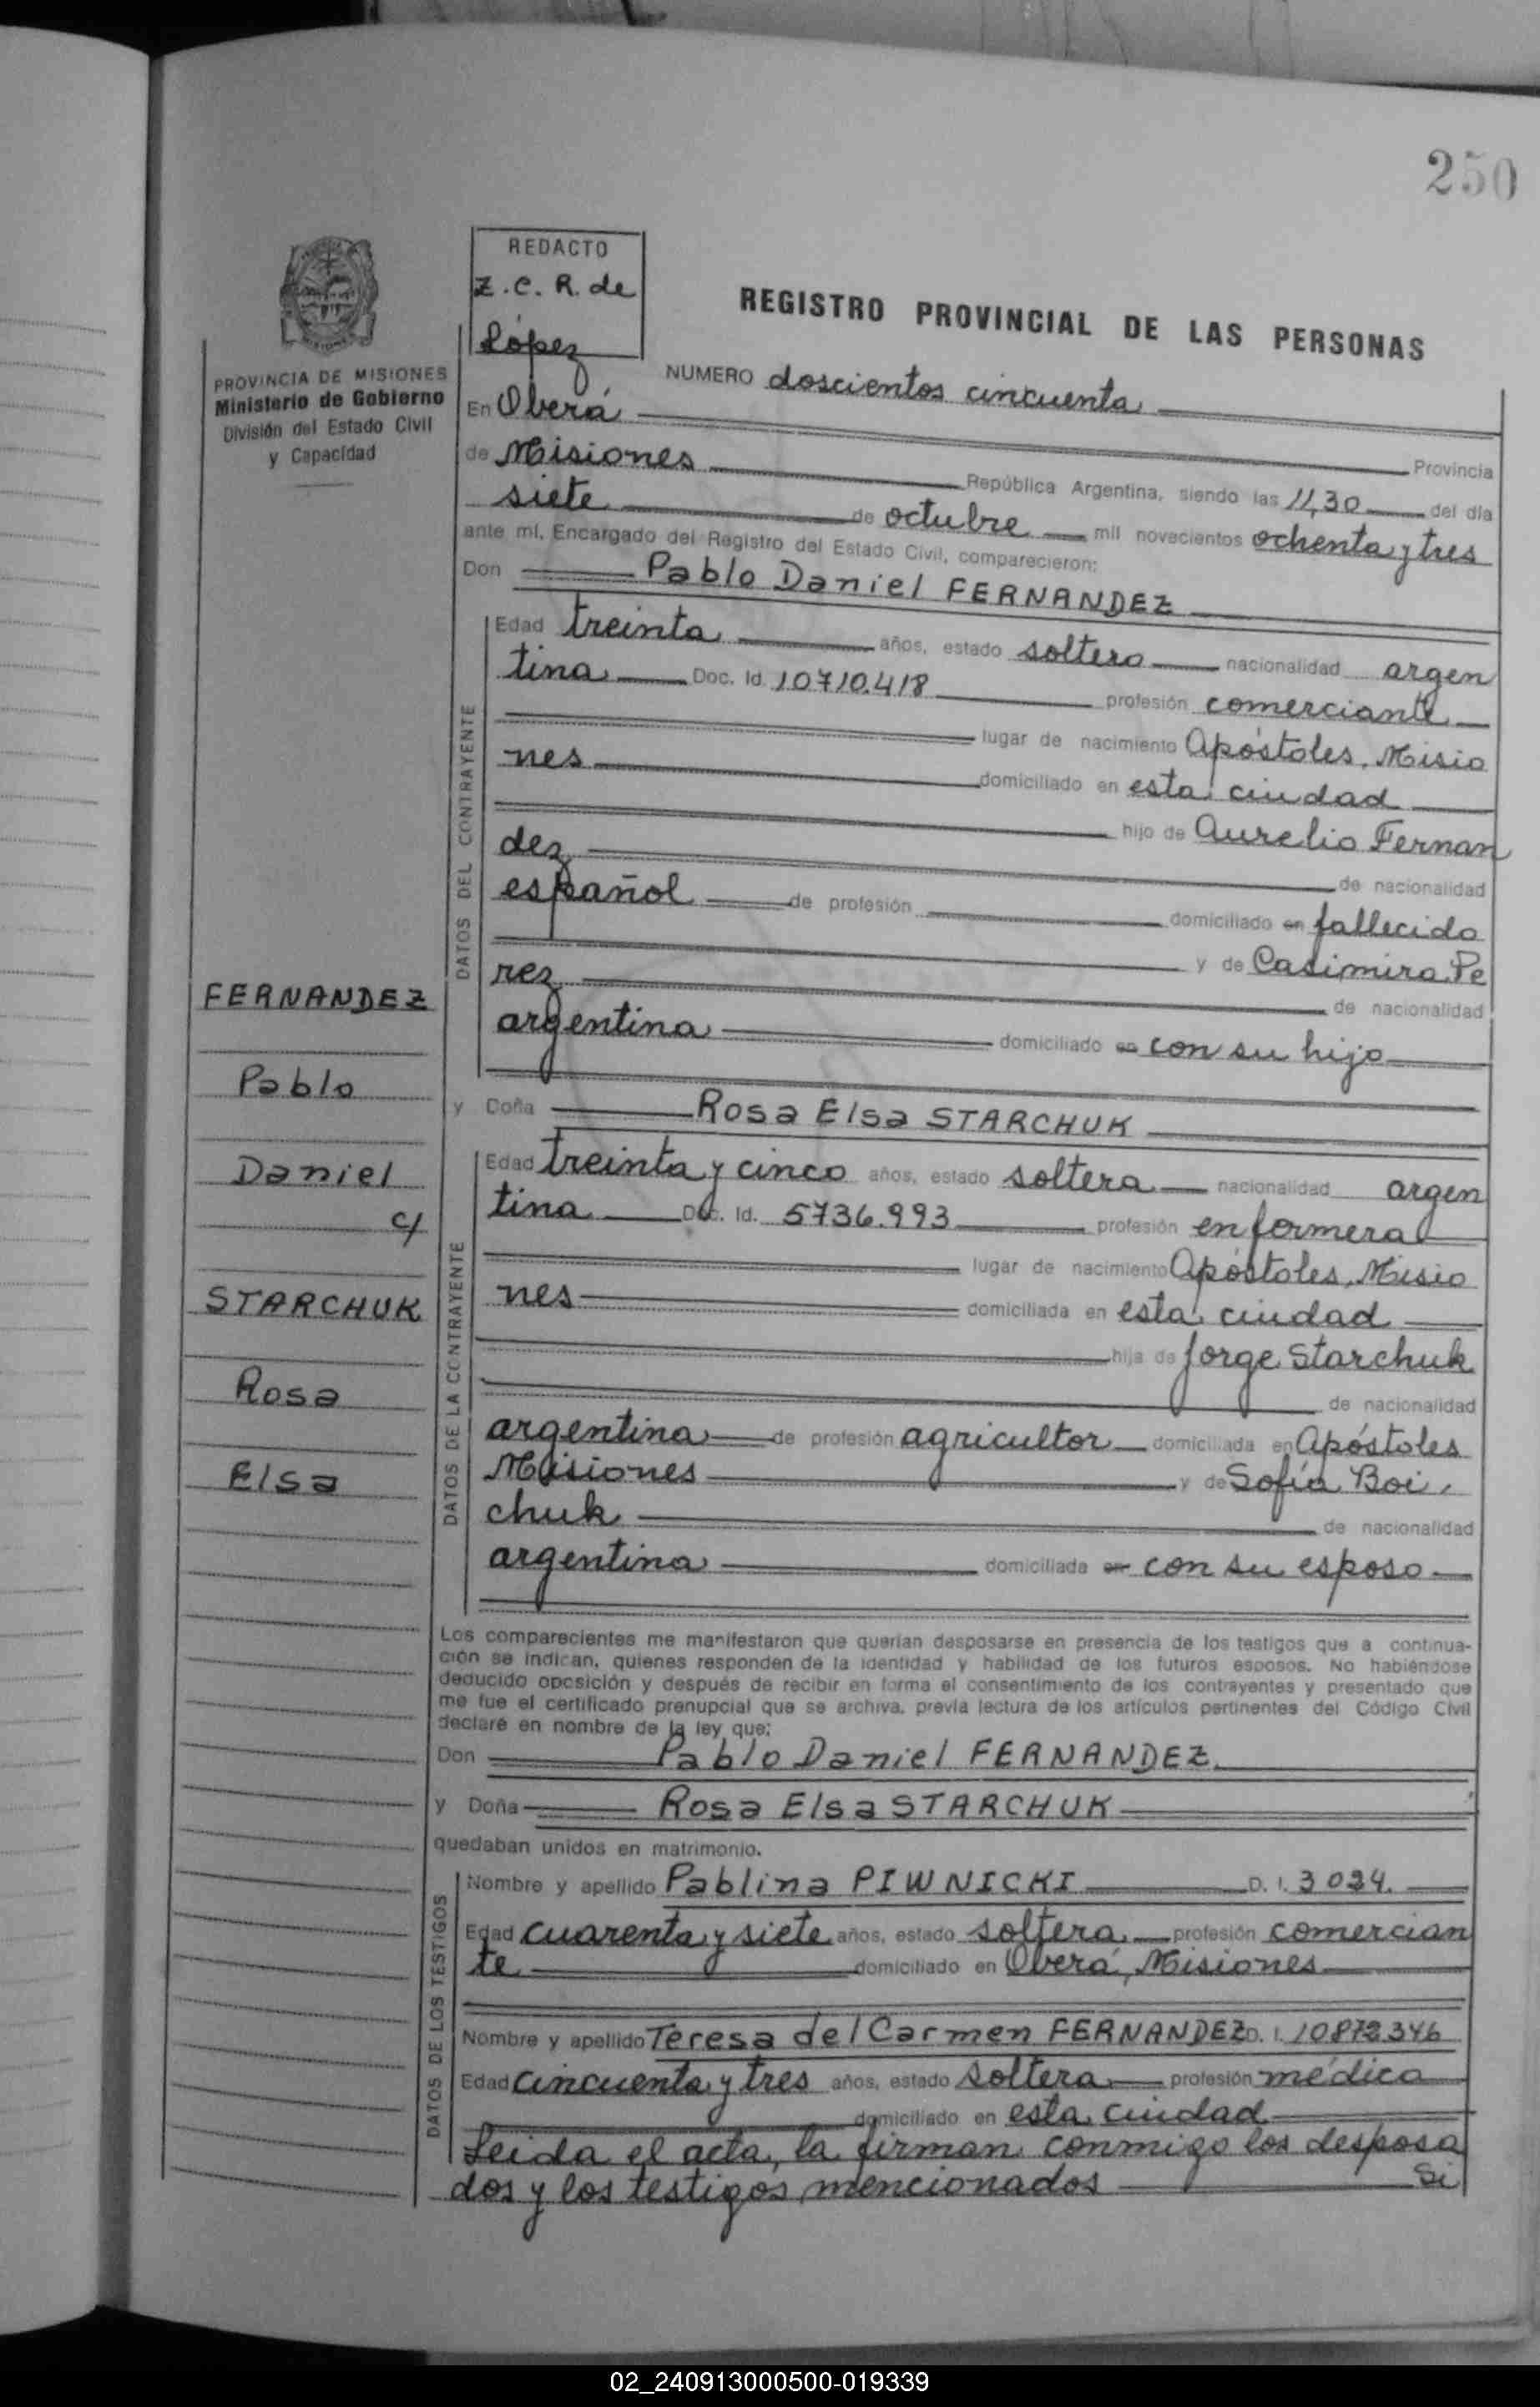 250
REDACTO
Z. C. R. de
López
REGISTRO PROVINCIAL DE LAS PERSONAS
PROVINCIA DE MISIONES
Ministerio de Gobierno
División del Estado Civil
y Capacidad
NUMERO doscientos cincuenta
En Oberá
Provincia
de Misiones República Argentina, siendo las 11,30 del día
siete de octubre mil novecientos ochenta y tres
ante mí, Encargado del Registro del Estado Civil, comparecieron:
Don Pablo Daniel FERNANDEZ
DATOS DEL CONTRAYENTE
Edad treinta años, estado soltero nacionalidad argen
tina Doc. Id. 10710.418 profesión comerciante
lugar de nacimiento Apóstoles, Misio
nes domiciliado en esta ciudad
hijo de Aurelio Fernan
dez de nacionalidad
español de profesión domiciliado en fallecido
y de Casimira Pe
rez de nacionalidad
argentina domiciliado en con su hijo
FERNANDEZ
Pablo
Daniel
c/
STARCHUK
Rosa
Elsa
y Doña Rosa Elsa STARCHUK
DATOS DE LA CONTRAYENTE
Edad treinta y cinco años, estado soltera nacionalidad argen
tina Doc. Id. 5736.993 profesión enfermera
lugar de nacimiento Apóstoles, Misio
nes domiciliada en esta ciudad
hija de Jorge Starchuk
de nacionalidad
argentina de profesión agricultor domiciliada en Apóstoles
Misiones y de Sofía Boi
chuk de nacionalidad
argentina domiciliada en con su esposo
Los comparecientes me manifestaron que querían desposarse en presencia de los testigos que a continua-
ción se indican, quienes responden de la identidad y habilidad de los futuros esposos. No habiéndose
deducido oposición y después de recibir en forma el consentimiento de los contrayentes y presentado que
me fue el certificado prenupcial que se archiva, previa lectura de los artículos pertinentes del Código Civil
declaré en nombre de la ley que:
Don Pablo Daniel FERNANDEZ
y Doña Rosa Elsa STARCHUK
quedaban unidos en matrimonio.
DATOS DE LOS TESTIGOS
Nombre y apellido Pablina PIWNICKI D. I. 3024.
Edad cuarenta y siete años, estado soltera profesión comercian
te domiciliado en Oberá, Misiones
Nombre y apellido Teresa del Carmen FERNANDEZ D. I. 10872.346
Edad cincuenta y tres años, estado soltera profesión médica
domiciliado en esta ciudad
Leida el acta, la firman conmigo los desposa
dos y los testigos mencionados Si
02_240913000500-019339